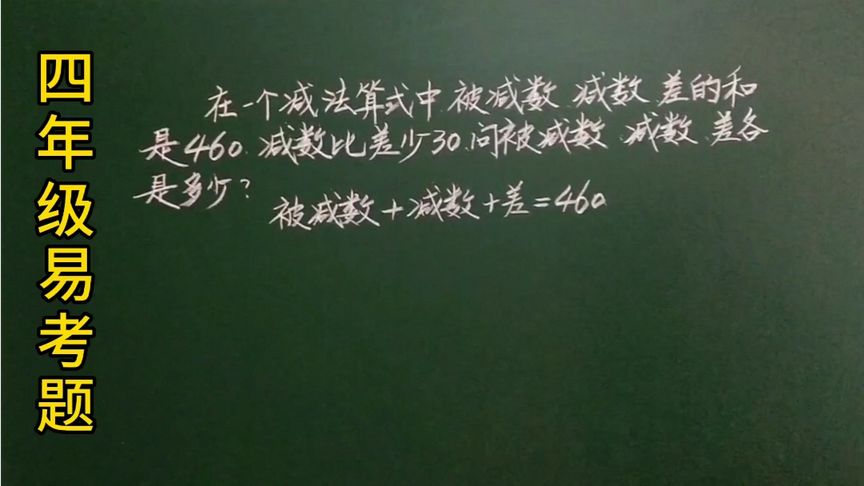 四年级易考题
在一个减法算式中,被减数、减数、差的和
是460,减数比差少30,问被减数、减数、差各
是多少?
被减数+减数+差=460